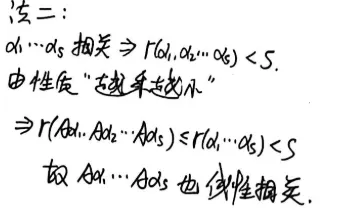 法二:
α₁…αs 相关 ⇒ r(α₁,α₂…αs) < S.
由性质“越乘越小”
⇒ r(Aα₁.Aα₂…Aαs) ≤ r(α₁…αs) < S
故 Aα₁…Aαs 也线性相关.